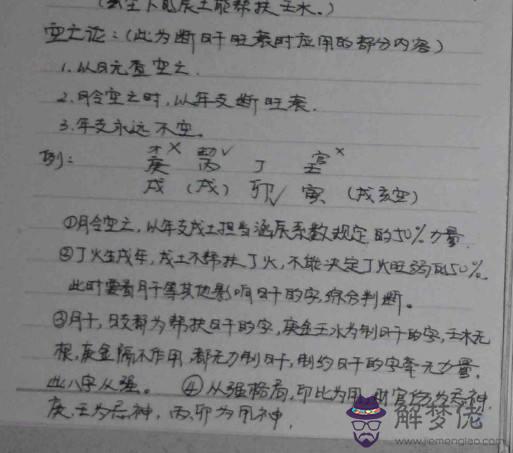 (亥壬卜的辰土能帮扶壬水。)
空亡论：(此为断日干旺衰时应用的部分内容)
1.以日元查空亡.
2.月令空亡时,以年支断旺衰.
3.年支永远不空。
例： 庚× 丙√ 丁 壬×
戌 (戌) 卯√ 寅 (戌亥空)
①月令空亡,以年支戌土担当 系数规定的50%力量.
②丁火生戌年,戌土不帮扶丁火,不能决定丁火旺弱的50%.
此时要看月干等其他影响日干的字,综合判断。
③月干,日支都为帮扶日干的字,庚金壬水为制日干的字,壬水无
根,庚金隔不作用,都无力制日干,制约日干的字牵无力量.
此八字从强。 ④从强格局,印比为用,财官伤为忌神.
庚.壬为忌神,丙.卯为用神.
解梦佬
www.jiemenglao.com